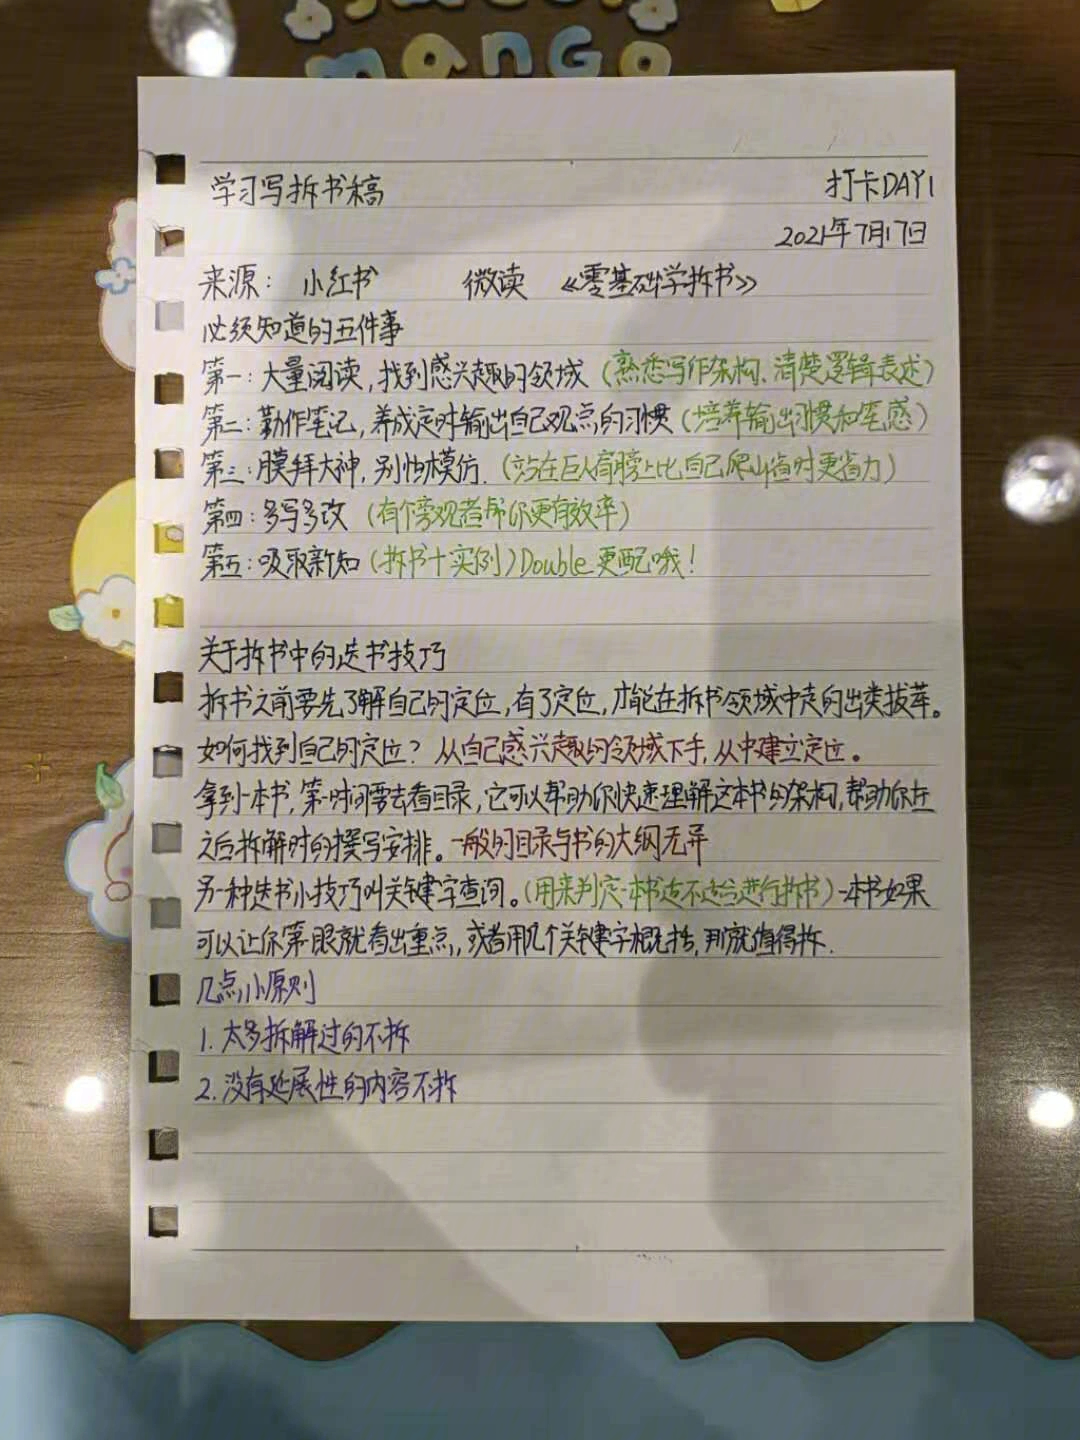 mango
学习写拆书稿 打卡DAY1
2021年7月17日
来源： 小红书 微读 《零基础学拆书》
必须知道的五件事
第一：大量阅读，找到感兴趣的领域（熟悉写作架构、清楚逻辑表述）
第二：勤作笔记，养成定时输出自己观点的习惯（培养输出习惯和笔感）
第三：膜拜大神，别怕模仿.（站在巨人肩膀上比自己爬山省时更省力）
第四：多写多改（有个旁观者帮你更有效率）
第五：吸取新知（拆书+实例）Double更配哦！
关于拆书中的选书技巧
拆书之前要先了解自己的定位，有了定位，才能在拆书领域中走的出类拔萃。
如何找到自己的定位？从自己感兴趣的领域下手，从中建立定位。
拿到一本书，第一时间要去看目录，它可以帮助你快速理解这本书的架构，帮助你在
之后拆解时的撰写安排。一般的目录与书的大纲无异
另一种选书小技巧叫关键字查询。（用来判定一本书适不适合进行拆书）一本书如果
可以让你第一眼就看出重点，或者用几个关键字概括，那就值得拆.
几点小原则
1.太多拆解过的不拆
2.没有延展性的内容不拆